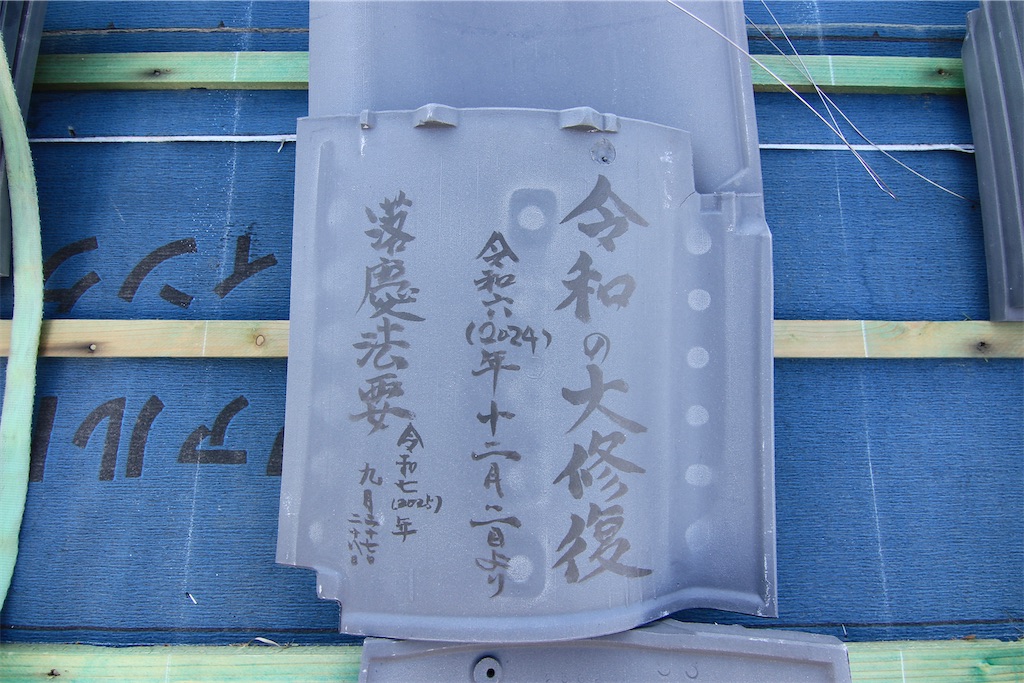 令和の大修復
令和六(2024)年十二月二日より
落慶法要
令和七(2025)年
九月二十七日
二十八日